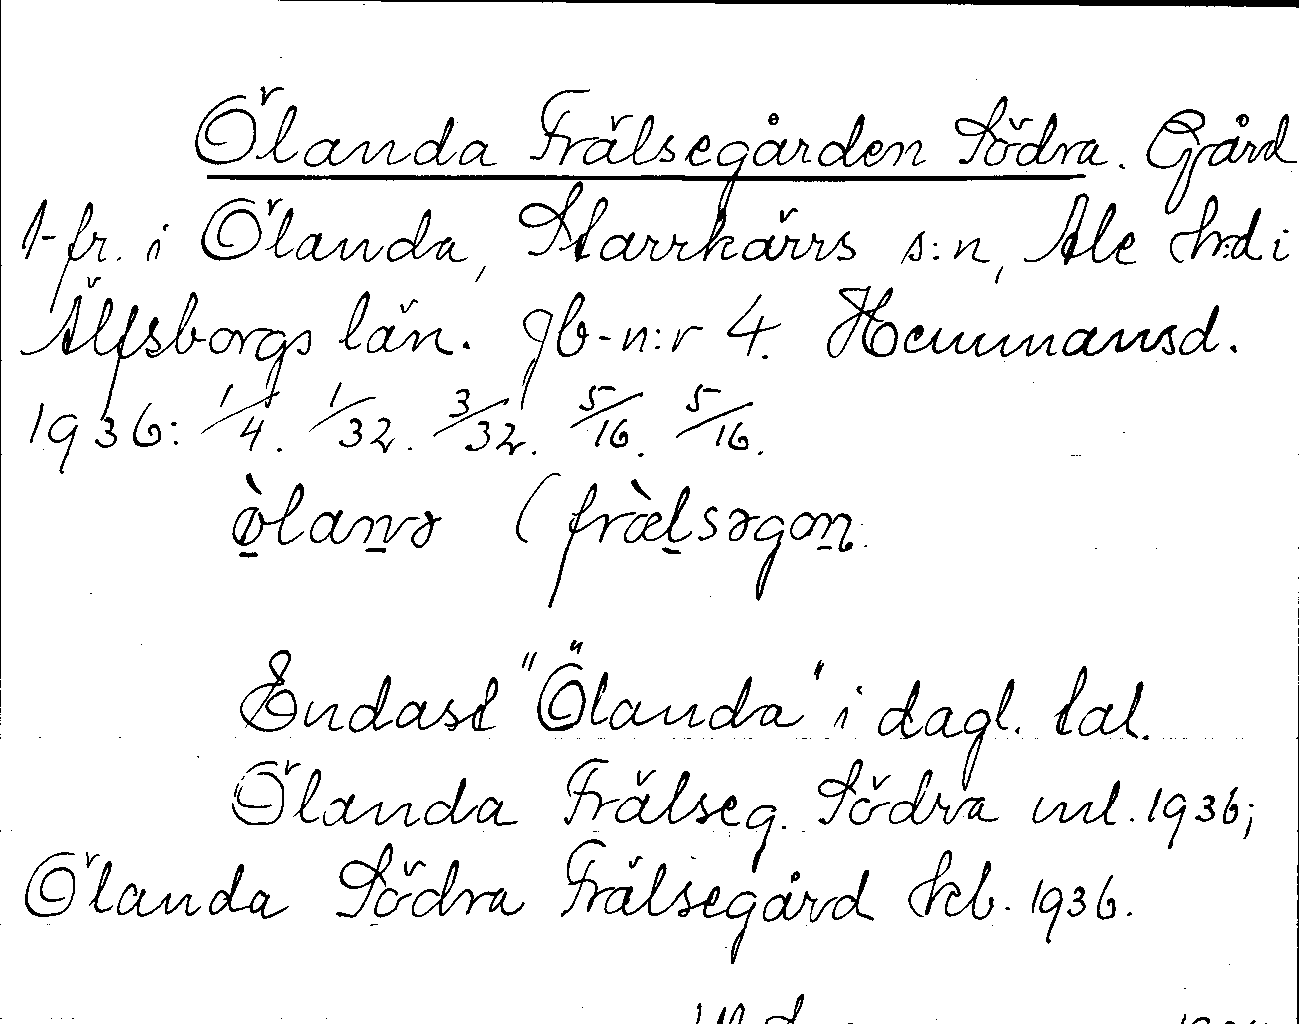 Ölanda Frälsegården Södra. Gård
1-fr. i Ölanda, Starrkärrs s:n, Ale hd i
Älfsborgs län. Jb-n:r 4. Hemmansd.
1936: 1/4. 1/32. 3/32. 5/16. 5/16.
ò̱laṉə (fræ̀ḻsəgoṉ.
Endast "Ölanda" i dagl. tal.
Ölanda Frälseg. Södra ml. 1936;
Ölanda Södra Frälsegård kb. 1936.